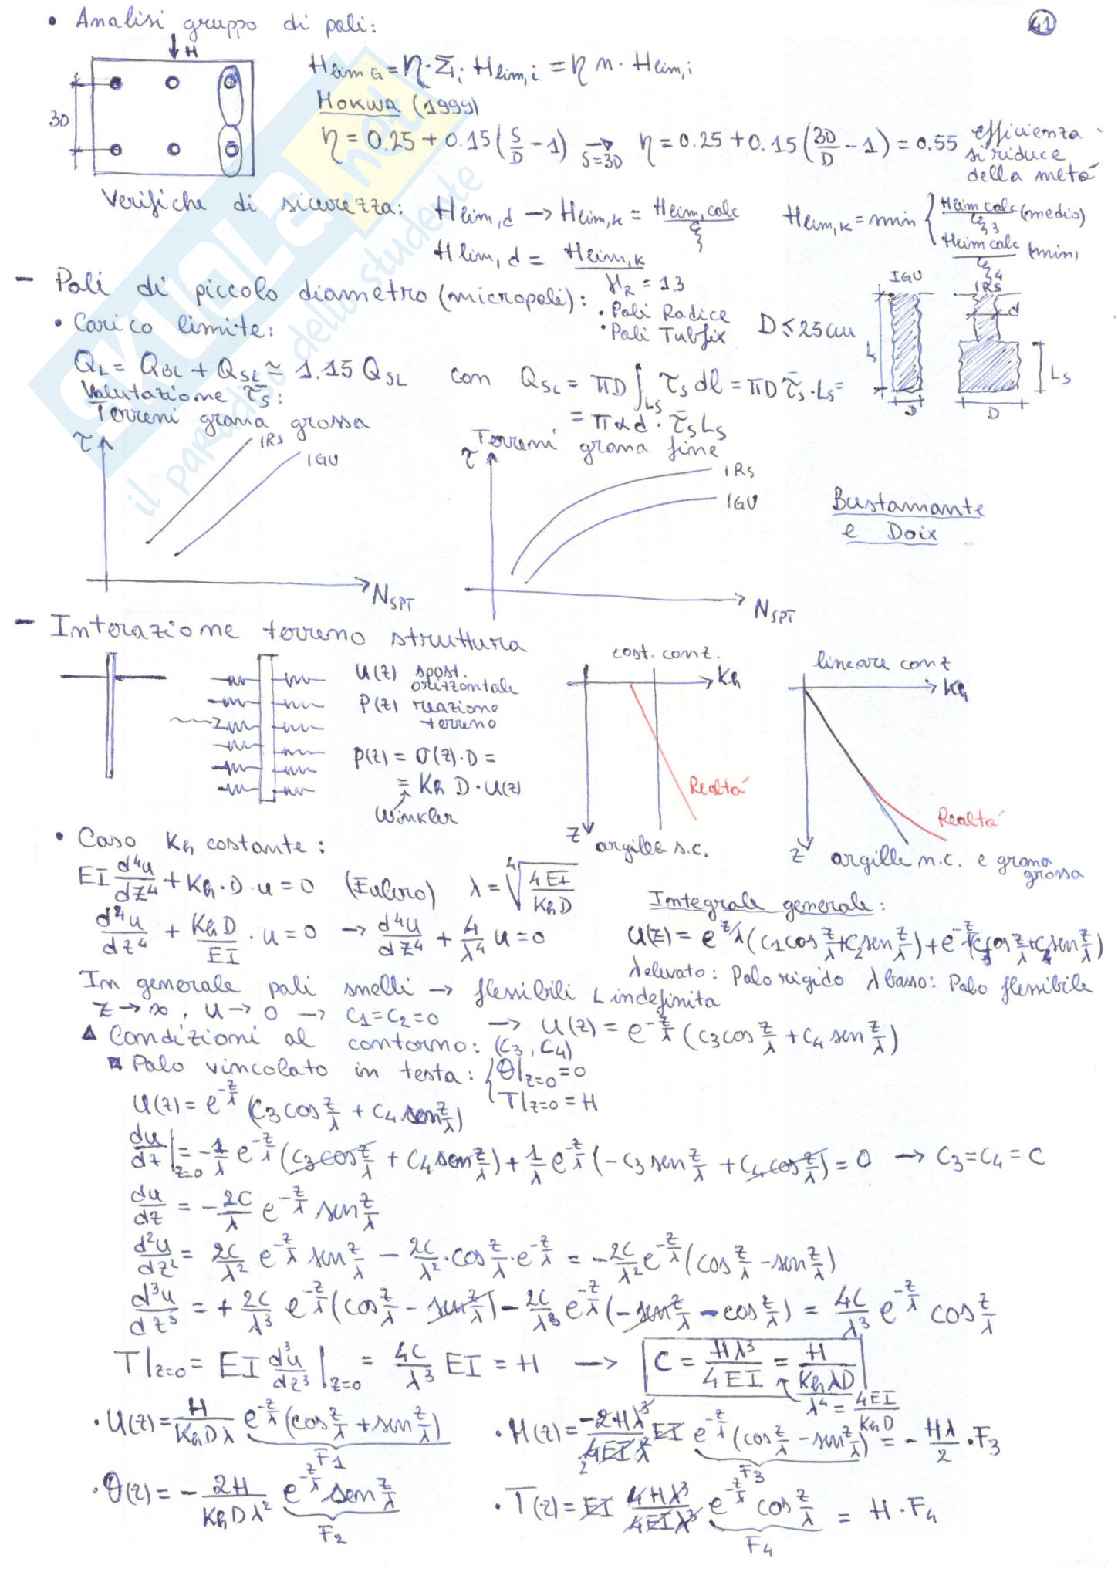 41
• Analisi gruppo di pali:
H
3D
Hlim G = η · Σi Hlim,i = η n · Hlim,i
Mokwa (1999)
η = 0.25 + 0.15 (S/D - 1) → S=3D η = 0.25 + 0.15 (3D/D - 1) = 0.55 efficienza si riduce della metà
Verifiche di sicurezza: Hlim,d → Hlim,k = Hlim,calc/ξ Hlim,k = min { Hlim calc/ξ3 (medio) Hlim calc/ξ4 (min)
Hlim,d = Hlim,k/γR = 1.3
- Pali di piccolo diametro (micropali): • Pali Radice • Pali Tubfix D ≤ 25cm
IGU IRS
L D d Ls D
• Carico limite:
QL = QBL + QSL ≃ 1.15 QSL con QSL = πD ∫Ls τs dl = πD τ̄s · Ls =
= π α d · τ̄s Ls
Valutazione τ̄s:
Terreni grana grossa
τ IRS IGU NSPT
Terreni grana fine
τ IRS IGU NSPT
Bustamante
e Doix
- Interazione terreno struttura
u(z) spost. orizzontale
p(z) reazione terreno
p(z) = σ(z) · D =
= Kh D · u(z)
Winkler
cost. con z.
Kh
Realtà
z argille s.c.
lineare con z
Kh
Realtà
z argille n.c. e grana grossa
• Caso Kh costante:
EI d⁴u/dz⁴ + Kh · D · u = 0 (Eulero) λ = ⁴√(4EI/KhD)
d⁴u/dz⁴ + KhD/EI · u = 0 → d⁴u/dz⁴ + 4/λ⁴ u = 0
Integrale generale:
u(z) = e^(z/λ) (c1 cos z/λ + c2 sen z/λ) + e^(-z/λ) (c3 cos z/λ + c4 sen z/λ)
λ elevato: Palo rigido λ basso: Palo flessibile
In generale pali snelli → flessibili L indefinita
z → ∞, u → 0 → c1 = c2 = 0 → u(z) = e^(-z/λ) (c3 cos z/λ + c4 sen z/λ)
▲ Condizioni al contorno: (c3, c4)
Palo vincolato in testa: { θ|z=0 = 0
T|z=0 = H
u(z) = e^(-z/λ) (c3 cos z/λ + c4 sen z/λ)
du/dz|z=0 = -1/λ e^(-z/λ) (c3 cos z/λ + c4 sen z/λ) + 1/λ e^(-z/λ) (-c3 sen z/λ + c4 cos z/λ) = 0 → c3 = c4 = C
du/dz = -2C/λ e^(-z/λ) sen z/λ
d²u/dz² = 2C/λ² e^(-z/λ) sen z/λ - 2C/λ² · cos z/λ · e^(-z/λ) = -2C/λ² e^(-z/λ) (cos z/λ - sen z/λ)
d³u/dz³ = + 2C/λ³ e^(-z/λ) (cos z/λ - sen z/λ) - 2C/λ³ e^(-z/λ) (-sen z/λ - cos z/λ) = 4C/λ³ e^(-z/λ) cos z/λ
T|z=0 = EI d³u/dz³|z=0 = 4C/λ³ EI = H → C = Hλ³/4EI = H/KhλD
λ⁴ = 4EI/KhD
• u(z) = H/KhDλ e^(-z/λ) (cos z/λ + sen z/λ)
F1
• M(z) = -2Hλ³/4EIλ² EI e^(-z/λ) (cos z/λ - sen z/λ) = -Hλ/2 · F3
2 F3
• θ(z) = -2H/KhDλ² e^(-z/λ) sen z/λ
F2
• T(z) = EI 4Hλ³/4EIλ³ e^(-z/λ) cos z/λ = H · F4
F4
il paradiso dello studente